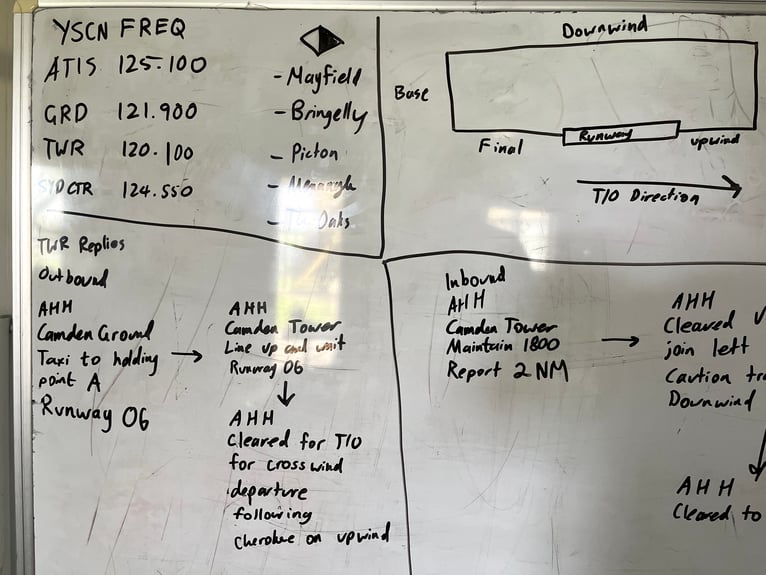 YSCN FREQ
ATIS 125.100
GRD 121.900
TWR 120.100
SYD CTR 124.550
- Mayfield
- Bringelly
- Picton
- Menangle
- The Oaks
Downwind
Base
Final
Runway
upwind
T/O Direction
TWR Replies
Outbound
AHH
Camden Ground
Taxi to holding
point A
Runway 06
AHH
Camden Tower
Line up and wait
Runway 06
AHH
Cleared for T/O
for crosswind
departure
following
cherokee on upwind
Inbound
AHH
Camden Tower
Maintain 1800
Report 2NM
AHH
Cleared
join left
Caution
Downwind
AHH
Cleared to